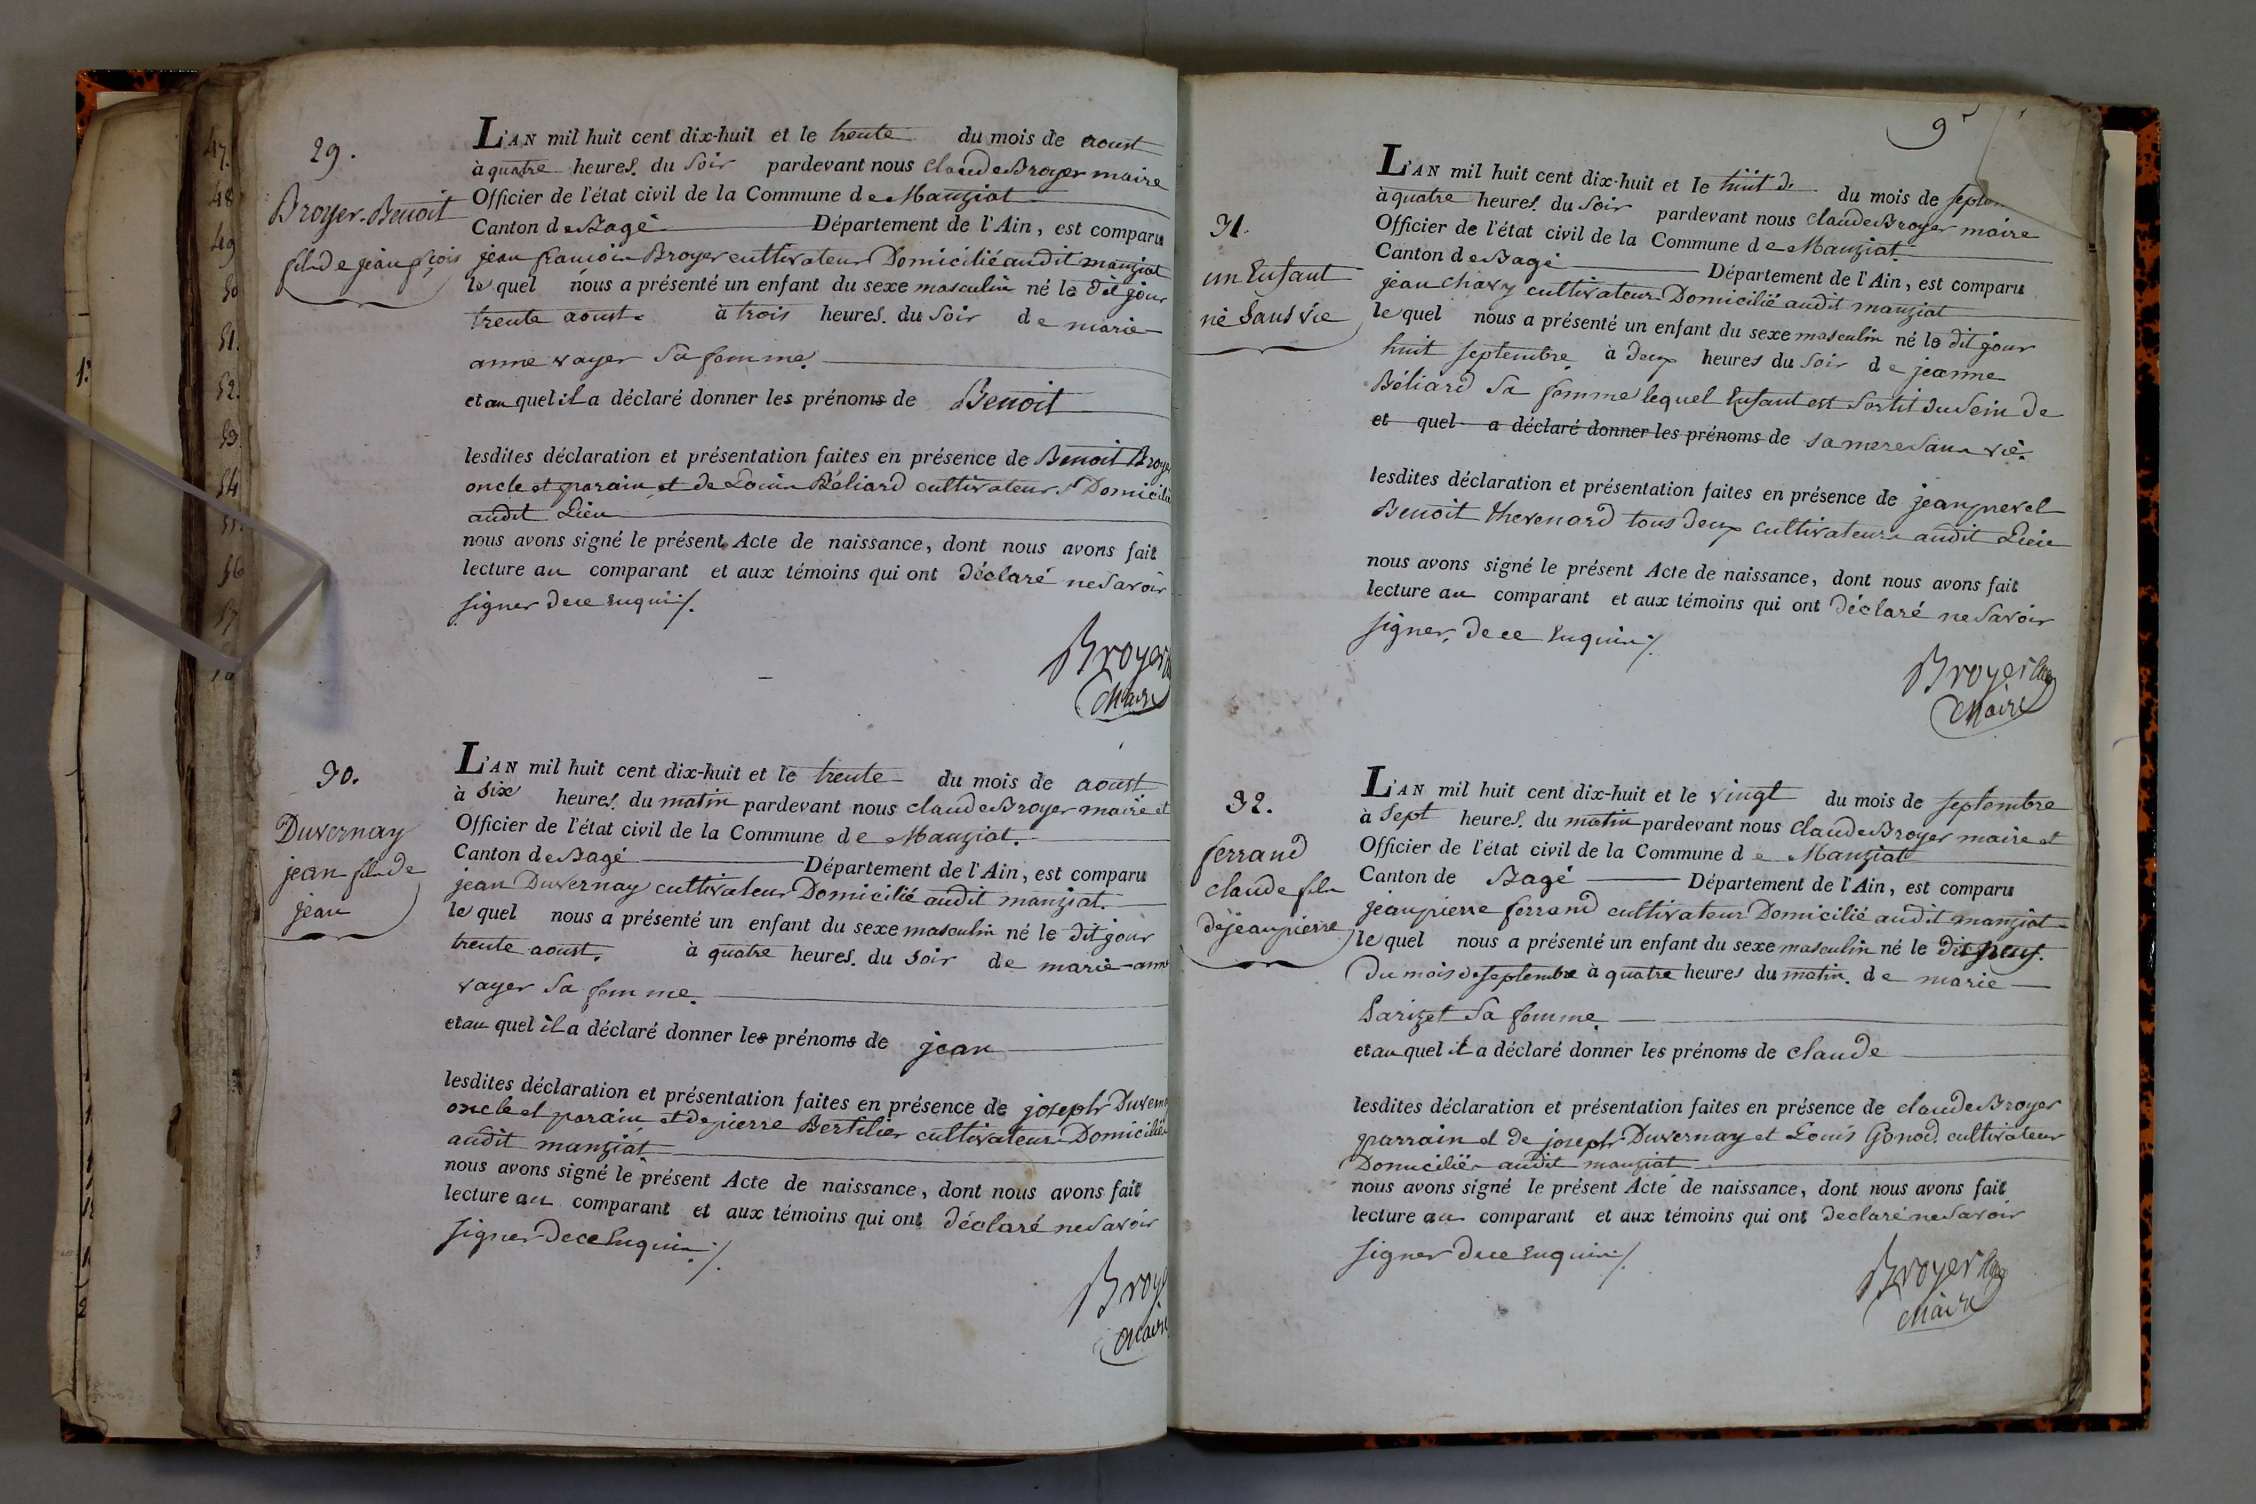 29.
Broyer Benoit
fils de jean fçois
L'AN mil huit cent dix-huit et le trente du mois de aoust
à quatre heures du Soir pardevant nous claude Broyer maire
Officier de l'état civil de la Commune de Manziat
Canton de Bagé Département de l'Ain, est comparu
jean francois Broyer cultivateur Domicilié audit manziat
lequel nous a présenté un enfant du sexe masculin né le dit jour
trente aoust à trois heures du Soir de marie
anne vayer Sa femme
et au quel il a déclaré donner les prénoms de Benoit
lesdites déclaration et présentation faites en présence de Benoit Broyer
oncle et parain et de Louis Béliard cultivateurs Domicilié
audit Lieu
nous avons signé le présent Acte de naissance, dont nous avons fait
lecture au comparant et aux témoins qui ont déclaré ne Savoir
signer de ce Enquis /.
Broyer
Maire
30.
Duvernay
jean fils de
jean
L'AN mil huit cent dix-huit et le trente du mois de aoust
à six heures du matin pardevant nous claude Broyer maire et
Officier de l'état civil de la Commune de Manziat.
Canton de Bagé Département de l'Ain, est comparu
jean Duvernay cultivateur Domicilié audit manziat.
lequel nous a présenté un enfant du sexe masculin né le dit jour
trente aoust. à quatre heures du soir de marie anne
vayer Sa femme.
et au quel il a déclaré donner les prénoms de jean
lesdites déclaration et présentation faites en présence de joseph Duverna
oncle et parain et de pierre Bertilier cultivateurs Domiciliés
audit manziat
nous avons signé le présent Acte de naissance, dont nous avons fait
lecture au comparant et aux témoins qui ont déclaré ne Savoir
signer de ce Enquis /.
Broye
Maire
47.
48
49
50
51.
52.
53.
54
55.
56
57
9
31.
un Enfant
né Sans vie
L'AN mil huit cent dix-huit et le huit du mois de septem
à quatre heures du Soir pardevant nous claude Broyer maire
Officier de l'état civil de la Commune de Manziat.
Canton de Bagé Département de l'Ain, est comparu
jean chavy cultivateur Domicilié audit manziat
lequel nous a présenté un enfant du sexe masculin né le dit jour
huit septembre à deux heures du Soir de jeanne
Béliard Sa femme lequel Enfant est Sortit du Sein de
et quel a déclaré donner les prénoms de sa mere Sans vie.
lesdites déclaration et présentation faites en présence de jean prevel
Benoit thevenard tous deux cultivateurs audit Lieu
nous avons signé le présent Acte de naissance, dont nous avons fait
lecture au comparant et aux témoins qui ont déclaré ne Savoir
signer, de ce Enquis /.
Broyer
Maire
32.
ferrand
claude fils
de jean pierre
L'AN mil huit cent dix-huit et le vingt du mois de septembre
à Sept heures du matin pardevant nous claude Broyer maire et
Officier de l'état civil de la Commune de Manziat
Canton de Bagé Département de l'Ain, est comparu
jean pierre ferrand cultivateur Domicilié audit manziat
lequel nous a présenté un enfant du sexe masculin né le
du mois de septembre à quatre heures du matin. de marie
Parizet Sa femme
et au quel il a déclaré donner les prénoms de claude
lesdites déclaration et présentation faites en présence de claude Broyer
parrain et de joseph Duvernay et Louis Gonod cultivateur
Domiciliés audit manziat
nous avons signé le présent Acte de naissance, dont nous avons fait
lecture au comparant et aux témoins qui ont declaré ne Savoir
signer de ce Enquis /.
Broyer
Maire